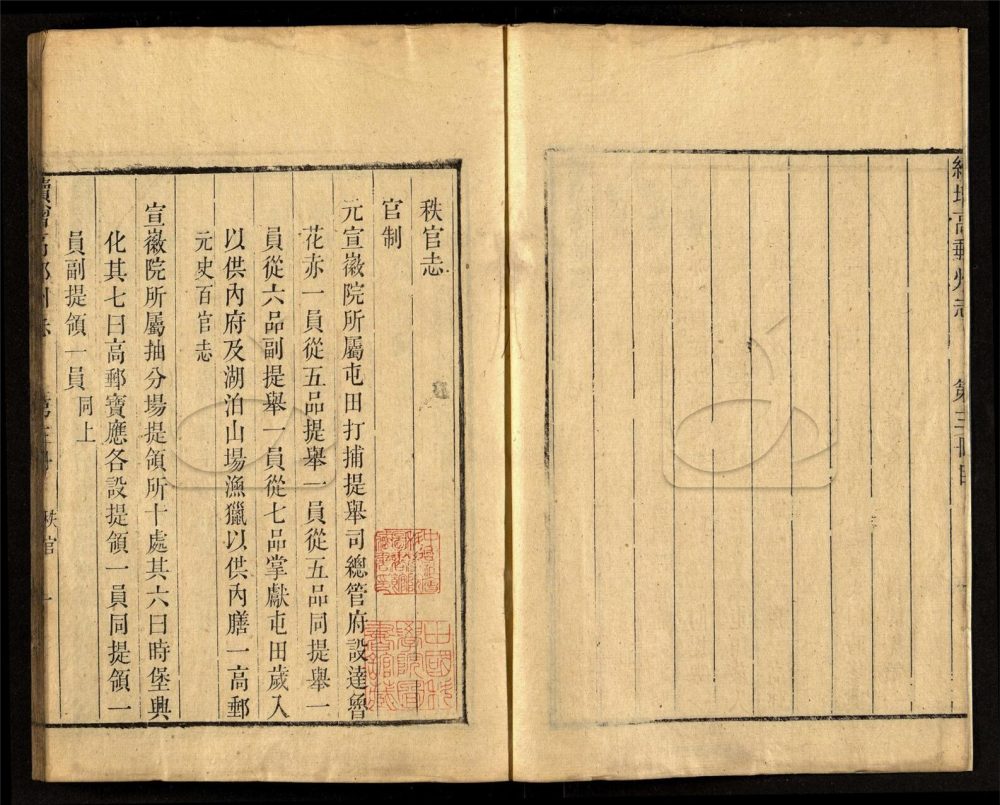 續增高郵州志　第三冊目
秩官志
官制
元宣徽院所屬屯田打捕提舉司總管府設達魯
花赤一員從五品提舉一員從五品同提舉一
員從六品副提舉一員從七品掌獻屯田歲入
以供內府及湖泊山場漁獵以供內膳一高郵
元史百官志
宣徽院所屬抽分場提領所十處其六曰時堡興
化其七曰高郵寶應各設提領一員同提領一
員副提領一員同上
續增高郵州志　第三冊　秩官　一